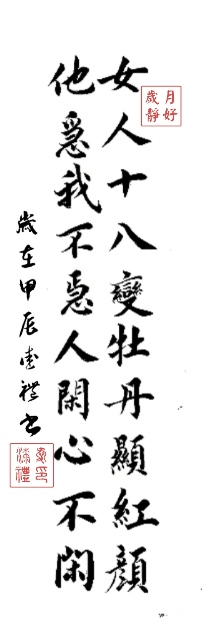 月好
歲靜
女人十八變牡丹顯紅顏
他惡我不惡人閑心不閑
歲在甲辰 禮书